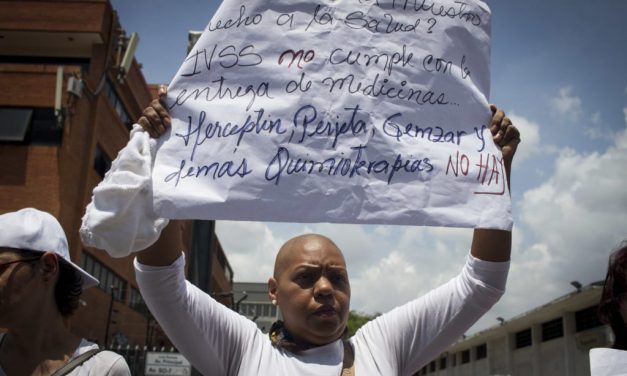 derecho a la Salud?
IVSS no cumple con la
entrega de medicinas...
Herceptin, Perjeta, Gemzar y
demás Quimioterapias NO HAY